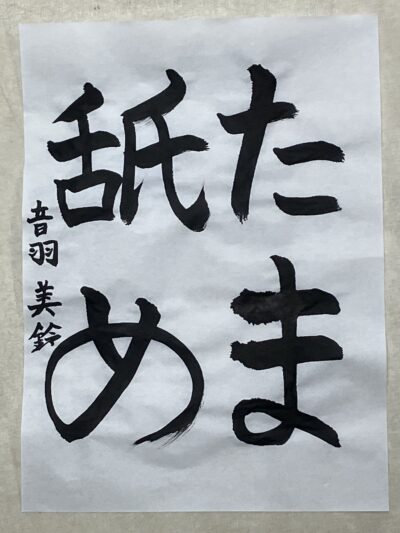 たま
舐め
音羽美鈴